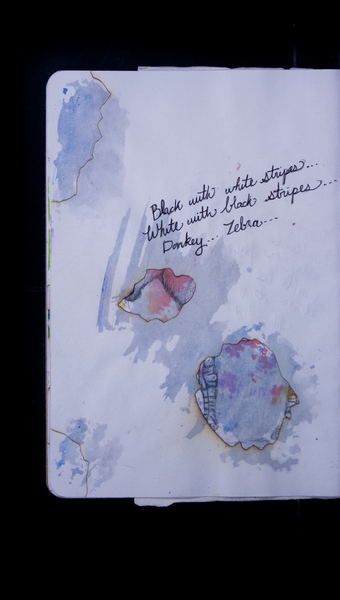 Black with white stripes...
White with black stripes...
Donkey... Zebra...